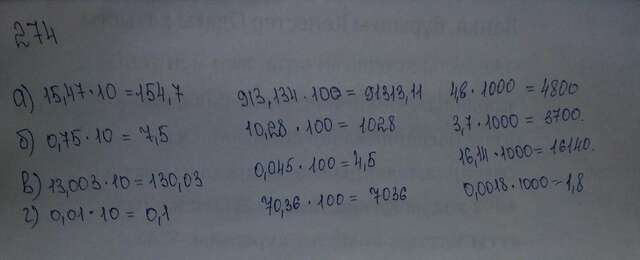 274
а) 15,47·10 = 154,7 913,134·100 = 91313,11 4,8·1000 = 4800
б) 0,75·10 = 7,5 10,28·100 = 1028 3,7·1000 = 3700.
в) 13,003·10 = 130,03 0,045·100 = 4,5 16,14·1000 = 16140.
г) 0,01·10 = 0,1 70,36·100 = 7036 0,0018·1000 = 1,8